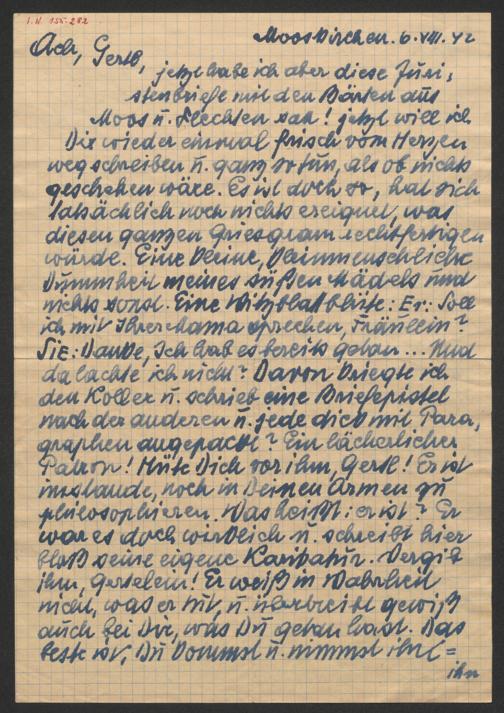 I.N. 155.282
Mooskirchen. 6.VIII.42
Ach, Gertl,
jetzt habe ich aber diese Juri-
stenbriefe mit den Bärten aus
Moos u. Flechten satt! Jetzt will ich
Dir wieder einmal frisch vom Herzen
wegschreiben u. ganz so tun, als ob nichts
geschehen wäre. Es ist doch so, hat sich
tatsächlich noch nichts ereignet, was
diesen ganzen Griesgram rechtfertigen
würde. Eine kleine, kleinmenschliche
Dummheit meines süßen Mädels und
nichts sonst. Eine Witzblattblüte: Er: Soll
ich mit Ihrer Mama sprechen, Fräulein?
Sie: Danke, Ich hab es bereits getan... Und
da lachte ich nicht? Davon kriegte ich
den Koller u. schrieb eine Briefepistel
nach der anderen u. jede dick mit Para-
graphen angepackt? Ein lächerlicher
Patron! Hüte Dich vor ihm, Gertl! Er ist
imstande, noch in Deinen Armen zu
philosophieren. Was heißt: er ist? Er
war es doch wirklich u. schreibt hier
bloß seine eigene Karikatur. Vergib
ihm, Gertelein! Er weiß in Wahrheit
nicht, was er tut, u. übertreibt gewiß
auch bei Dir, was Du getan hast. Das
beste ist, Du kommst u. nimmst ihn (=
ihn